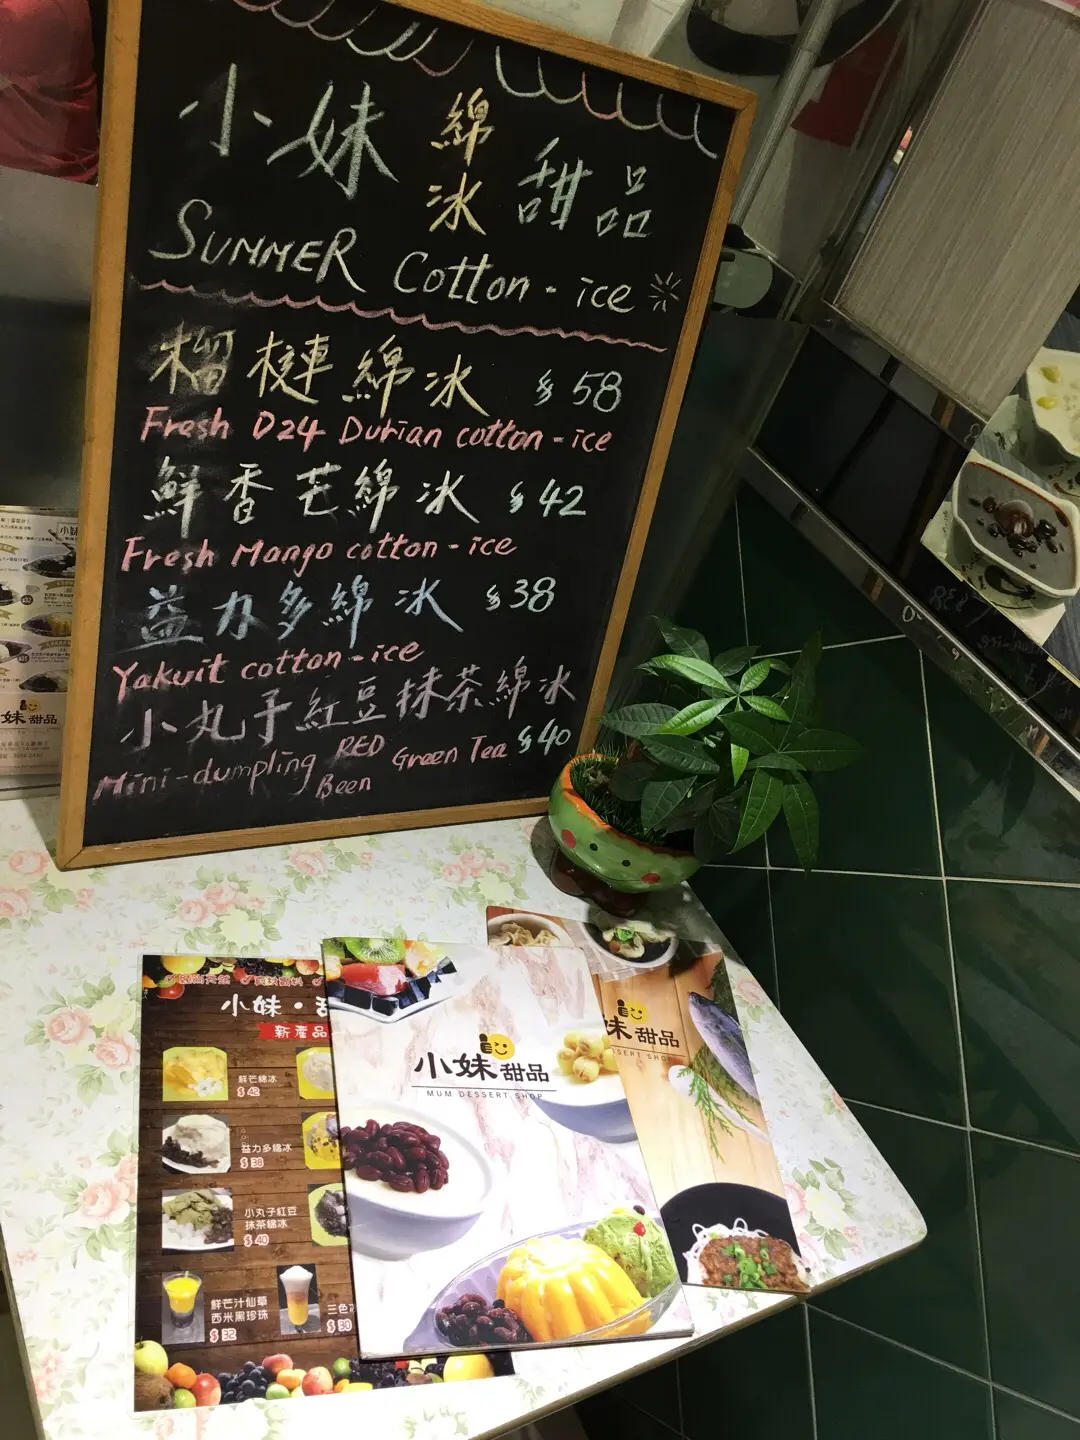 小妹綿冰甜品
SUMMER Cotton-ice
榴槤綿冰 $58
Fresh D24 Durian cotton-ice
鮮香芒綿冰 $42
Fresh Mango cotton-ice
益力多綿冰 $38
Yakuit cotton-ice
小丸子紅豆抹茶綿冰
Mini-dumpling RED Been Green Tea $40
妹 甜品
小妹・甜
新產品
鮮芒綿冰
$ 42
益力多綿冰
$ 38
小丸子紅豆
抹茶綿冰
$ 40
鮮芒汁仙草
西米黑珍珠
$ 32
三色
$ 30
小妹甜品
MUM DESSERT SHOP
妹甜品
SERT SHOP